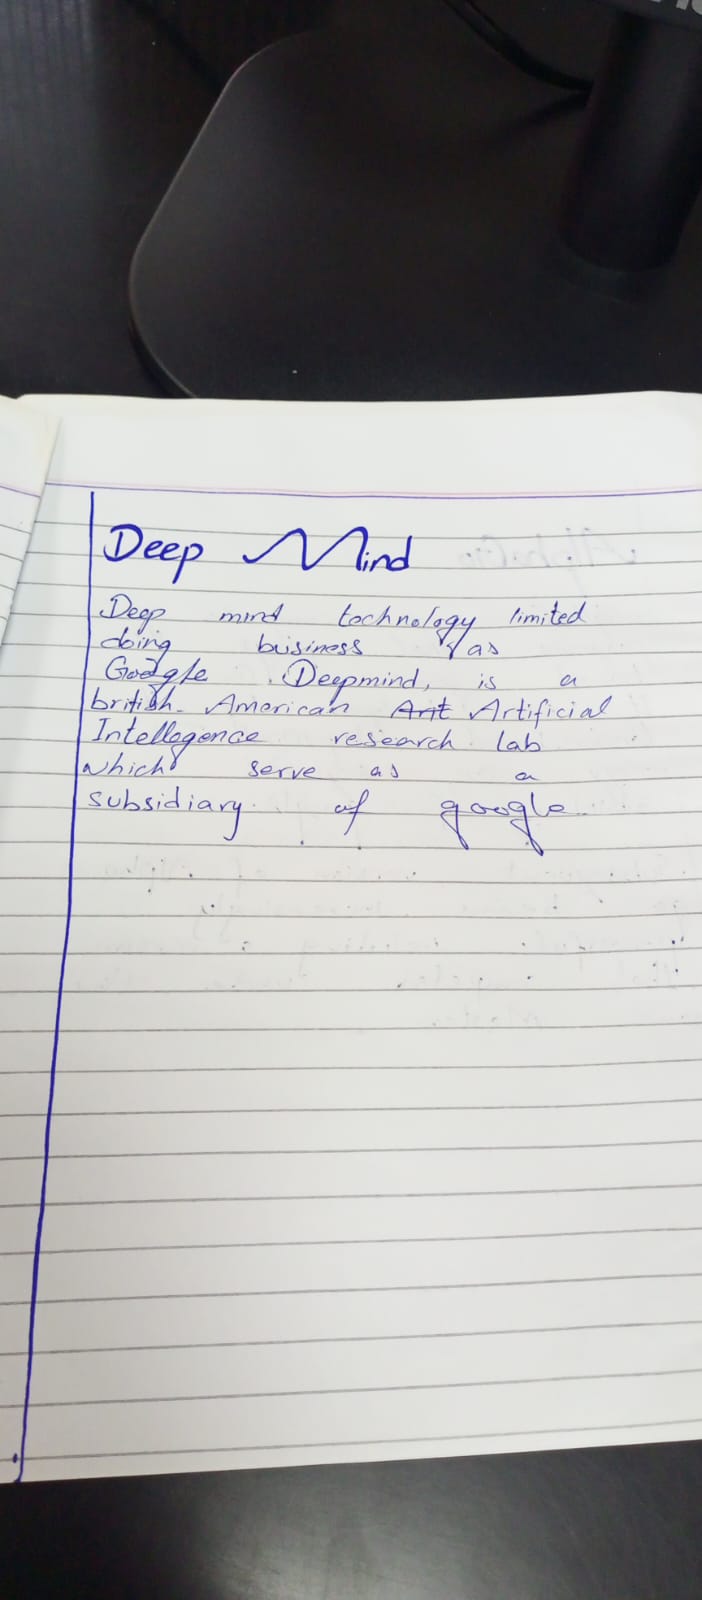 Deep Mind
Deep mind technology limited
doing business as
Google Deepmind, is a
british-American Artificial
Intellegence research lab
which serve as a
subsidiary of google